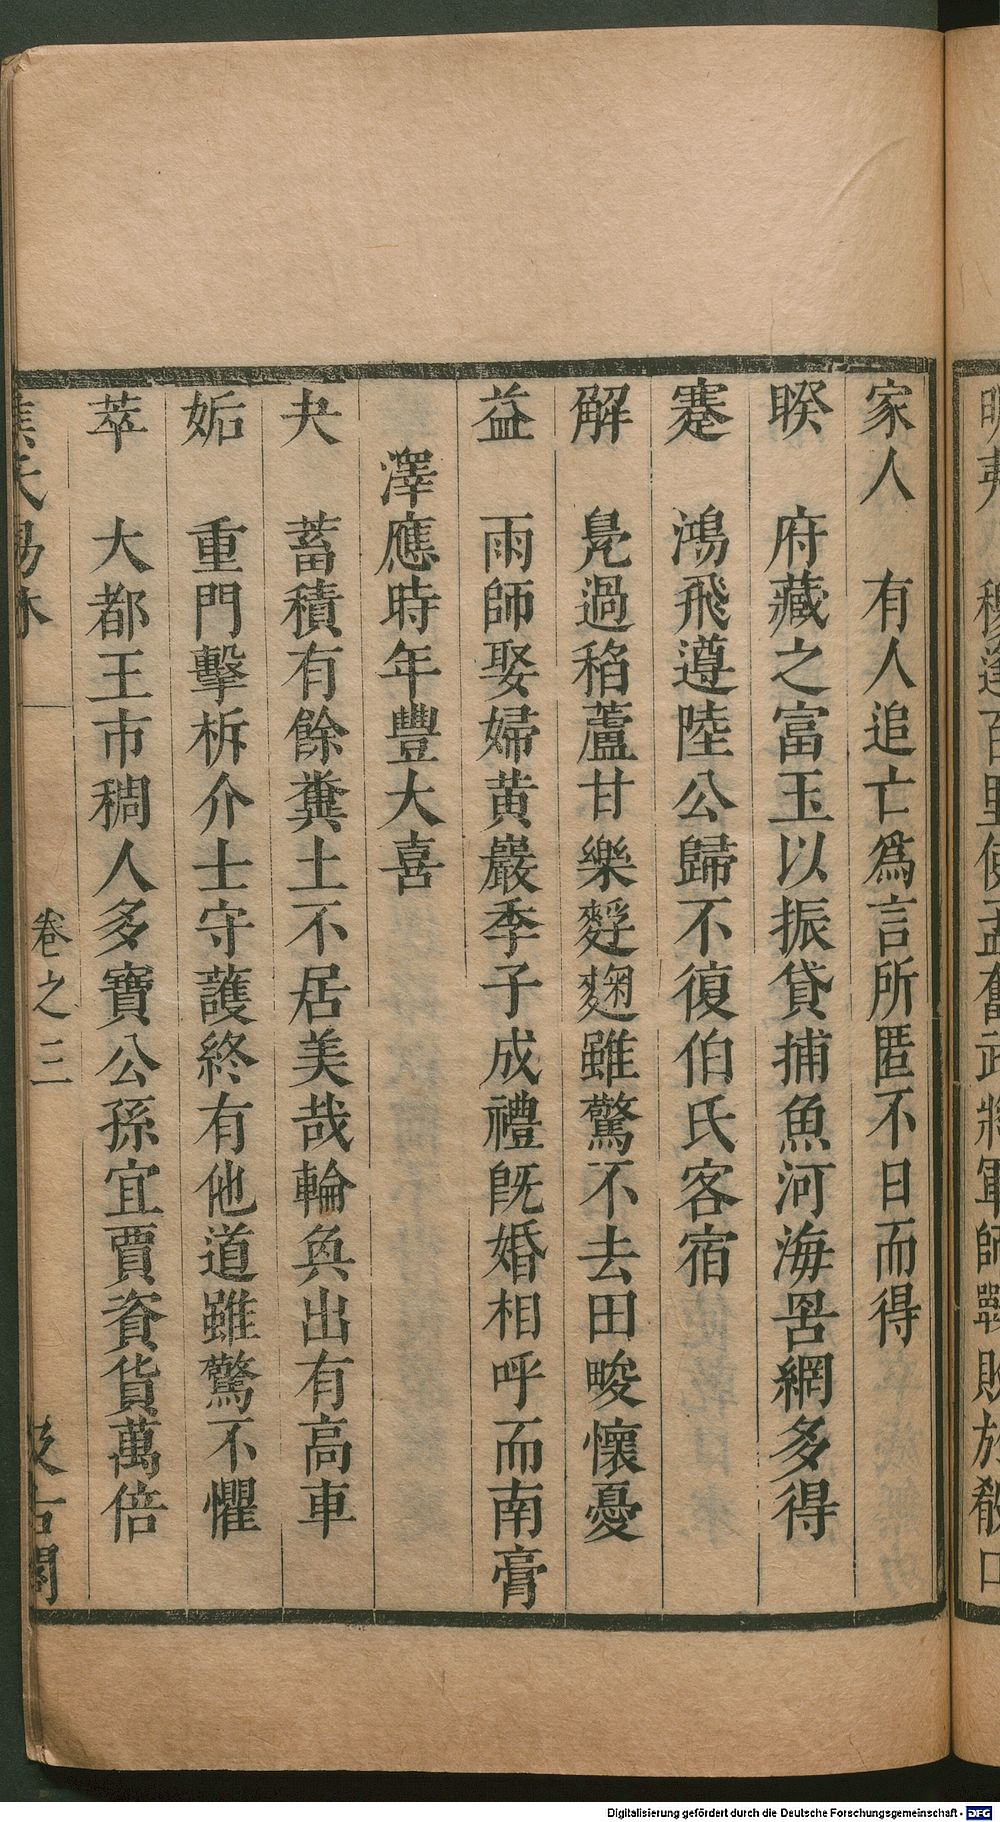 家人　有人追亡爲言所匿不日而得
睽　府藏之富玉以振貸捕魚河海罟網多得
蹇　鴻飛遵陸公歸不復伯氏客宿
解　鳧過稻蘆甘樂麰麹雖驚不去田畯懷憂
益　雨師娶婦黃巖季子成禮旣婚相呼而南膏
澤應時年豐大喜
夬　蓄積有餘糞土不居美哉輪奐出有高車
姤　重門擊柝介士守護終有他道雖驚不懼
萃　大都王市稠人多寶公孫宜賈資貨萬倍
焦氏易林　卷之三　汲古閣
Digitalisierung gefördert durch die Deutsche Forschungsgemeinschaft - DFG